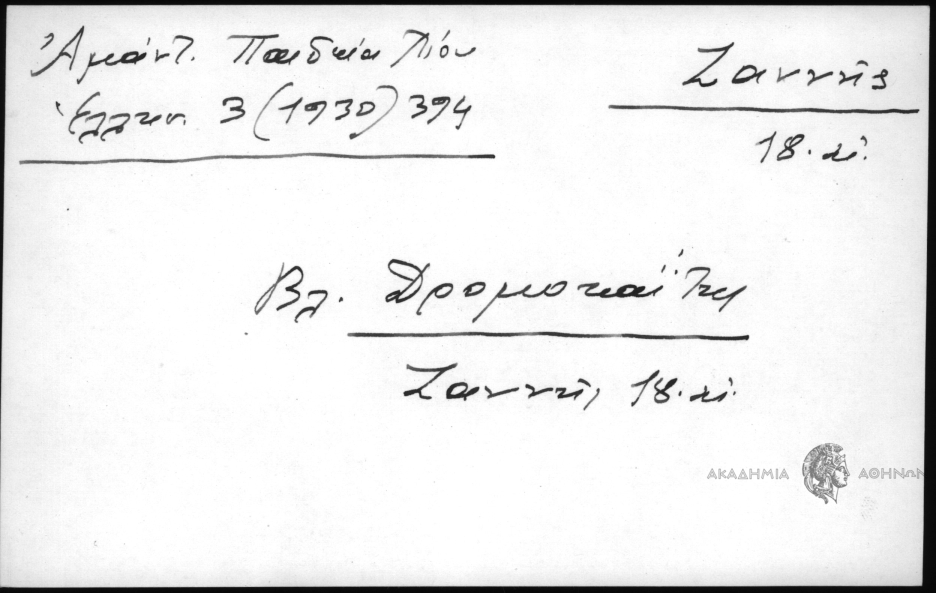 Ἀμάντ. Παιδεία Χίου
Ἑλλην. 3 (1930) 394
Ζαννῆς
18. αἰ.
Βλ. Δρομοκαΐτη
Ζαννῆ, 18. αἰ.
ΑΚΑΔΗΜΙΑ ΑΘΗΝΩΝ